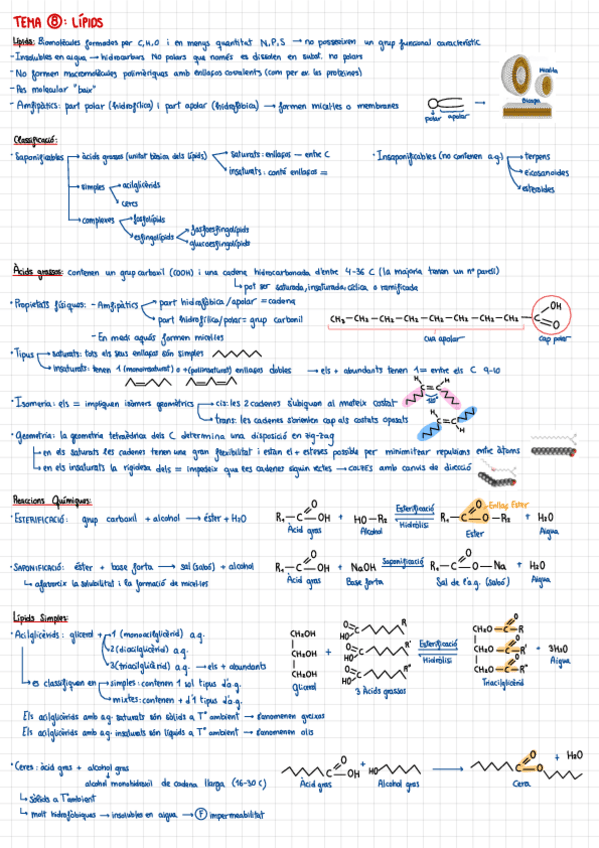 TEMA ⑧: LÍPIDS
Lípids: Biomolècules formades per C,H,O i en menys quantitat N,P,S → no posseeixen un grup funcional característic
- Insolubles en aigua → hidrocarburs No polars que només es dissolen en subst. no polars
- No formen macromolècules polimèriques amb enllaços covalents (com per ex. les proteïnes)
- Pes molecular "baix"
- Amfipàtics: part polar (hidrofílica) i part apolar (hidrofòbica) → formen micel·les o membranes
polar apolar
Micel·la
Bicapa
Classificació:
· Saponificables → àcids grassos (unitat bàsica dels lípids) → saturats: enllaços — entre C
insaturats: conté enllaços =
→ simples → acilglicèrids
ceres
→ complexes → fosfolípids
esfingolípids → fosfoesfingolípids
glucoesfingolípids
· Insaponificables (no contenen a.g.) → terpens
eicosanoides
esteroides
Àcids grassos: contenen un grup carboxil (COOH) i una cadena hidrocarbonada d'entre 4-36 C (la majoria tenen un nº parell)
↳ pot ser saturada, insaturada, cíclica o ramificada
· Propietats físiques: - Amfipàtics → part hidrofòbica/apolar = cadena
part hidrofílica/polar = grup carboxil
- En medi aquós formen micel·les
CH₃—CH₂—CH₂—CH₂—CH₂—CH₂—CH₂—CH₂—C
OH
O
cua apolar
cap polar
· Tipus → saturats: tots els seus enllaços són simples
insaturats: tenen 1 (monoinsaturat) o + (poliinsaturat) enllaços dobles → els + abundants tenen 1= entre els C 9-10
· Isomeria: els = impliquen isòmers geomètrics → cis: les 2 cadenes s'ubiquen al mateix costat
trans: les cadenes s'orienten cap als costats oposats
H H
C=C
H
C=C
H
· Geometria: la geometria tetraèdrica dels C determina una disposició en zig-zag
↳ en els saturats les cadenes tenen una gran flexibilitat i estan el + esteses possible per minimitzar repulsions entre àtoms
↳ en els insaturats la rigidesa dels = impedeix que les cadenes siguin rectes → COLZES amb canvis de direcció
Reaccions Químiques:
· ESTERIFICACIÓ: grup carboxil + alcohol → éster + H₂O
R₁—C
O
OH
+ HO—R₂
Esterificació
Hidròlisi
R₁—C
O
O—R₂
+ H₂O
Enllaç Éster
Àcid gras
Alcohol
Ester
Aigua
· SAPONIFICACIÓ: éster + base forta → sal (sabó) + alcohol
↳ afavoreix la solubilitat i la formació de micel·les
R₁—C
O
OH
+ NaOH
Saponificació
R₁—C
O
O—Na
+ H₂O
Àcid gras
Base forta
Sal de l'a.g. (sabó)
Aigua
Lípids Simples:
· Acilglicèrids: glicerol + 1 (monoacilglicèrid) a.g.
2 (diacilglicèrid) a.g.
3 (triacilglicèrid) a.g. → els + abundants
↳ es classifiquen en → simples: contenen 1 sol tipus d'a.g.
mixtes: contenen + d'1 tipus d'a.g.
Els acilglicèrids amb a.g. saturats són sòlids a Tª ambient → s'anomenen greixos
Els acilglicèrids amb a.g. insaturats són líquids a Tª ambient → s'anomenen olis
CH₂OH
CHOH
CH₂OH
Glicerol
+
O
C
HO
R
O
C
HO
R'
O
C
HO
R''
3 Àcids grassos
Esterificació
Hidròlisi
CH₂O—C—R
O
CH₂O—C—R'
O
CH₂O—C—R''
O
Triacilglicèrid
+ 3H₂O
Aigua
· Ceres: àcid gras + alcohol gras
alcohol monohidroxil de cadena llarga (16-30 C)
↳ sòlids a Tª ambient
↳ molt hidrofòbiques → insolubles en aigua → Ⓕ impermeabilitat
C
O
OH
+
HO
C
O
O
+ H₂O
Àcid gras
Alcohol gras
Cera